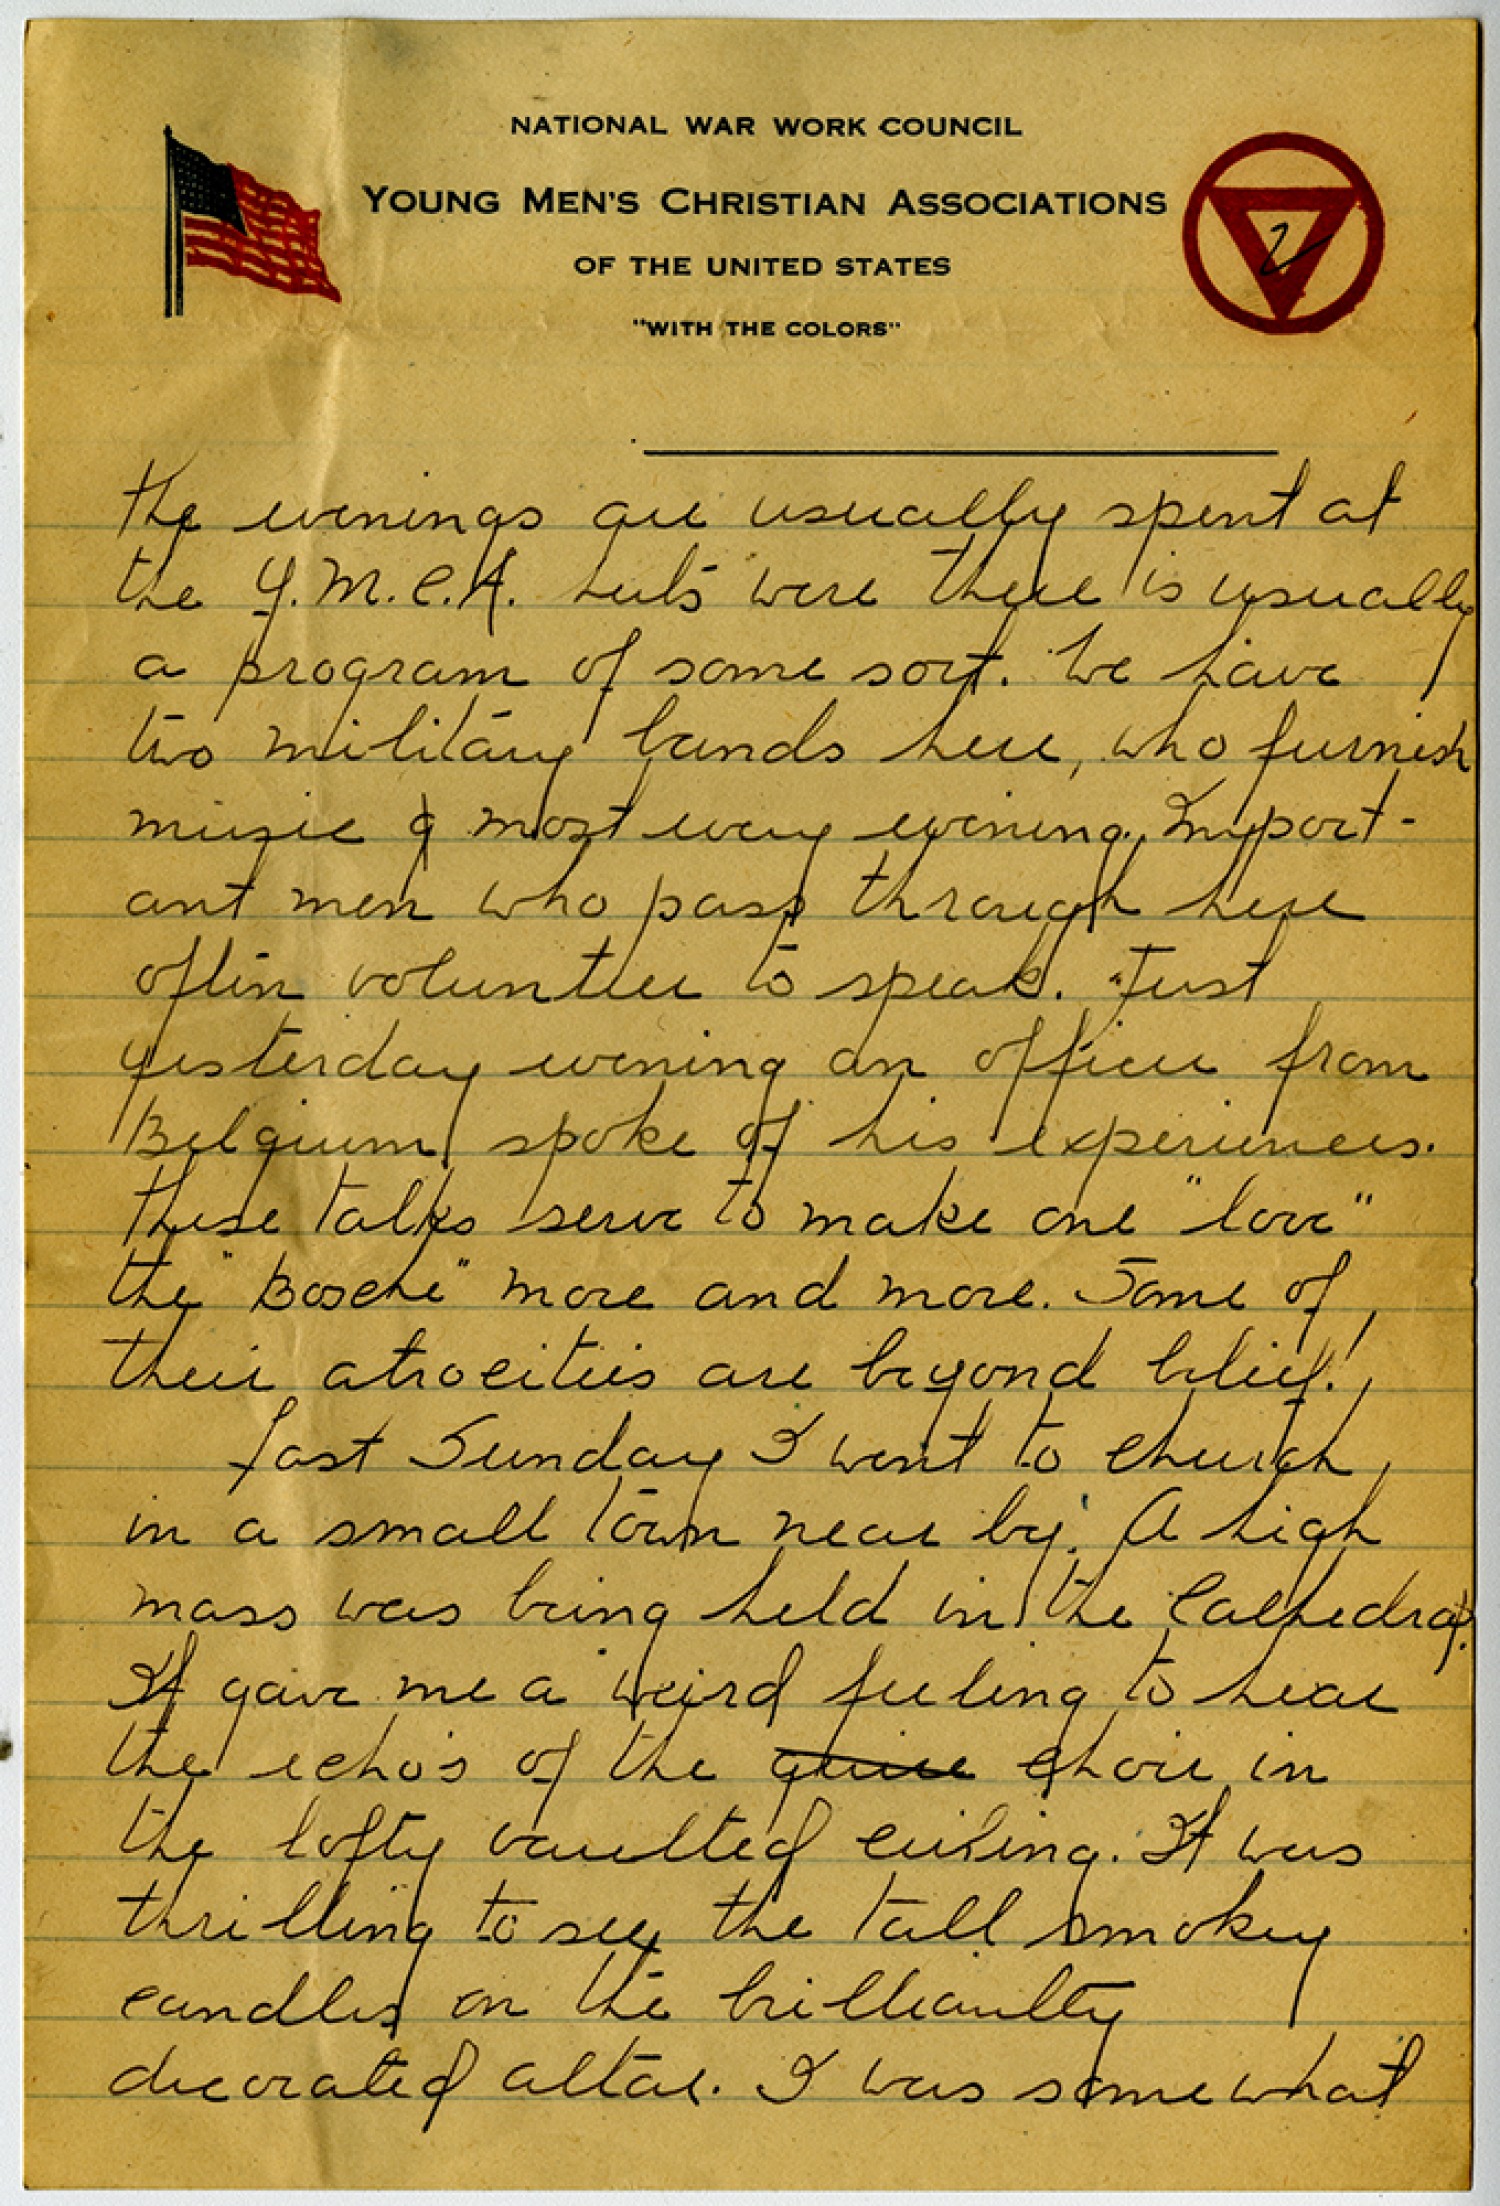 NATIONAL WAR WORK COUNCIL
YOUNG MEN'S CHRISTIAN ASSOCIATIONS
OF THE UNITED STATES
"WITH THE COLORS"
2
the evenings are usually spent at
the Y.M.C.A. huts were there is usually
a program of some sort. We have
two military bands here, who furnish
music most every evening. Import-
ant men who pass through here
often volunteer to speak. Just
yesterday evening an officer from
Belgium spoke of his experiences.
These talks serve to make one "love"
the "Bosche" more and more. Some of
their atrocities are beyond belief!
Last Sunday I went to church,
in a small town near by. A high
mass was being held in the Cathedral.
It gave me a weird feeling to hear
the echo's of the choir in
the lofty vaulted ceiling. It was
thrilling to see the tall smokey
candles on the brilliantly
decorated altar. I was somewhat